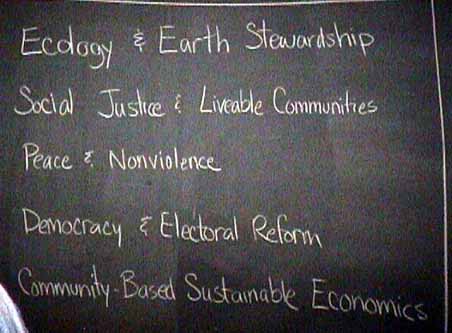 Ecology & Earth Stewardship
Social Justice & Liveable Communities
Peace & Nonviolence
Democracy & Electoral Reform
Community-Based Sustainable Economics